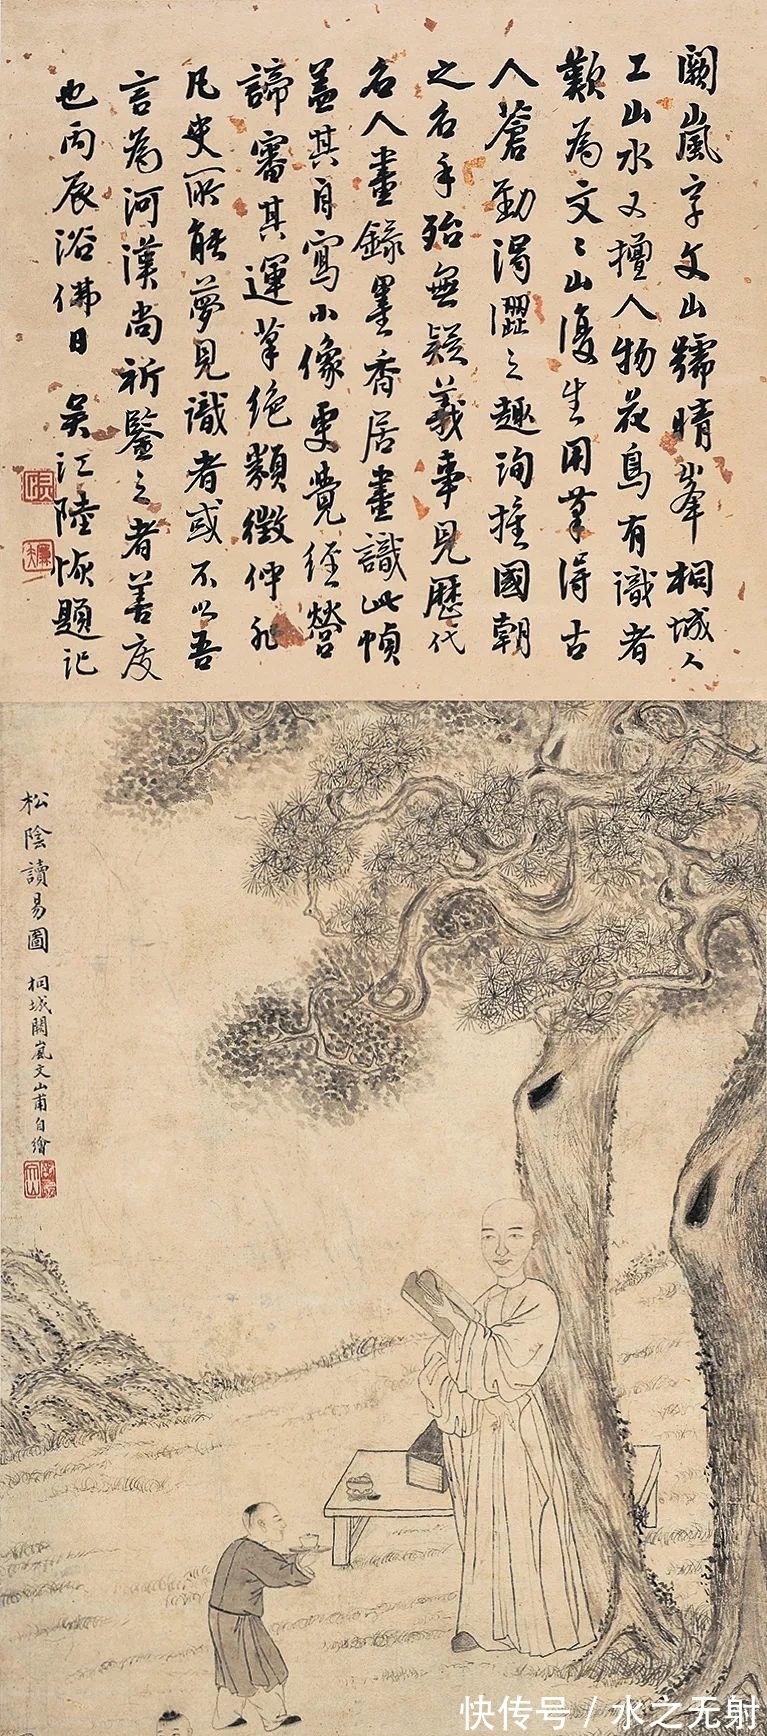 闕嵐字文山號晴峯桐城人
工山水又擅人物花鳥有識者
歎為文〻山復生用筆得古
人蒼勁渴澀之趣詢推國朝
之名手殆無疑義事見歷代
名人畫錄墨香居畫識此幀
蓋其自寫小像更覺經營
諦審其運筆絕類徵仲非
凡史所能夢見識者或不以吾
言為河漢尚祈鑒之者善度
也丙辰浴佛日 吳江陸恢題記
松陰讀易圖 桐城闕嵐文山甫自繪
快传号 / 水之无射